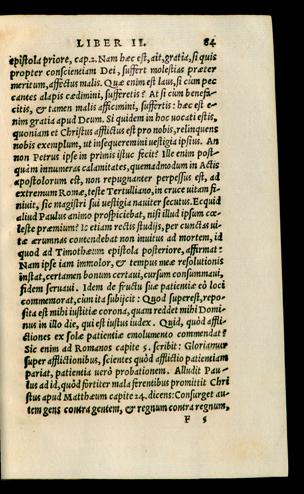 LIBER II. 84
epistola priore, cap. 2. Nam hæc est, ait, gratia, si quis
propter conscientiam Dei, suffert molestias præter
meritum, affectus malis. Quæ enim est laus, si cùm pec
cantes alapis cædimini, suffertetis? At si cùm benefa-
citis, & tamen malis afficimini, suffertis: hæc est e-
nim gratia apud Deum. Si quidem in hoc vocati estis,
quoniam et Christus afflictus est pro nobis, relinquens
nobis exemplum, ut insequeremini vestigia ipsius. An
non Petrus ipse in primis istuc fecit? Ille enim post-
quàm innumeras calamitates, quemadmodum in Actis
apostolorum est, non repugnanter perpessus est, ad
extremum Romæ, teste Tertulliano, in cruce vitam fi-
niuit, sic magistri sui vestigia nauiter secutus. Ecquid
aliud Paulus animo prospiciebat, nisi illud ipsum cœ-
leste præmium? Is etiam rectis studijs, per cunctas ui-
tæ ærumnas contendebat non inuitus ad mortem, id
quod ad Timothæum epistola posteriore, affirmat:
Nam ipse iam immolor, & tempus meæ resolutionis
instat, certamen bonum certaui, cursum consummaui,
fidem seruaui. Idem de fructu suæ patientiæ eò loci
commemorat, cùm ita subijcit: Quod superest, repo-
sita est mihi iustitiæ corona, quam reddet mihi Domi-
nus in illo die, qui est iustus iudex. Quid, quòd affli-
ctiones ex sole patientiæ emolumento commendat?
Sic enim ad Romanos capite 5. scribit: Gloriamur
super afflictionibus, scientes quòd afflictio patientiam
pariat, patientia verò probationem. Alludit Pau-
lus ad id, quòd fortiter mala ferentibus promittit Chri
stus apud Matthæum capite 24. dicens: Consurget au-
tem gens contra gentem, & regnum contra regnum,
F 5